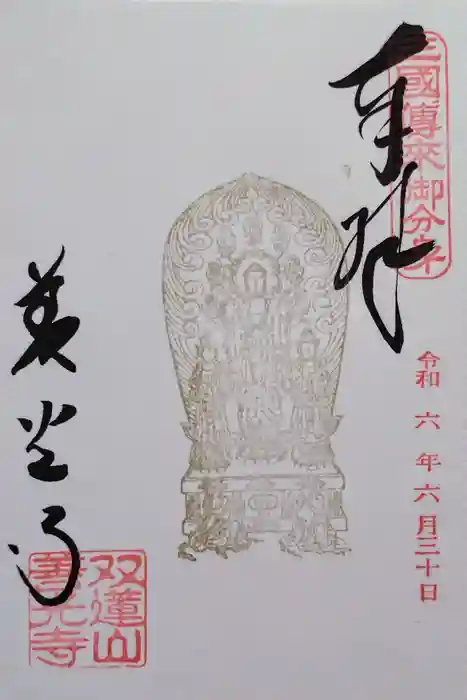 三國傳来御分身
奉拝
令和六年六月三十日
善光寺
双蓮山
善光寺